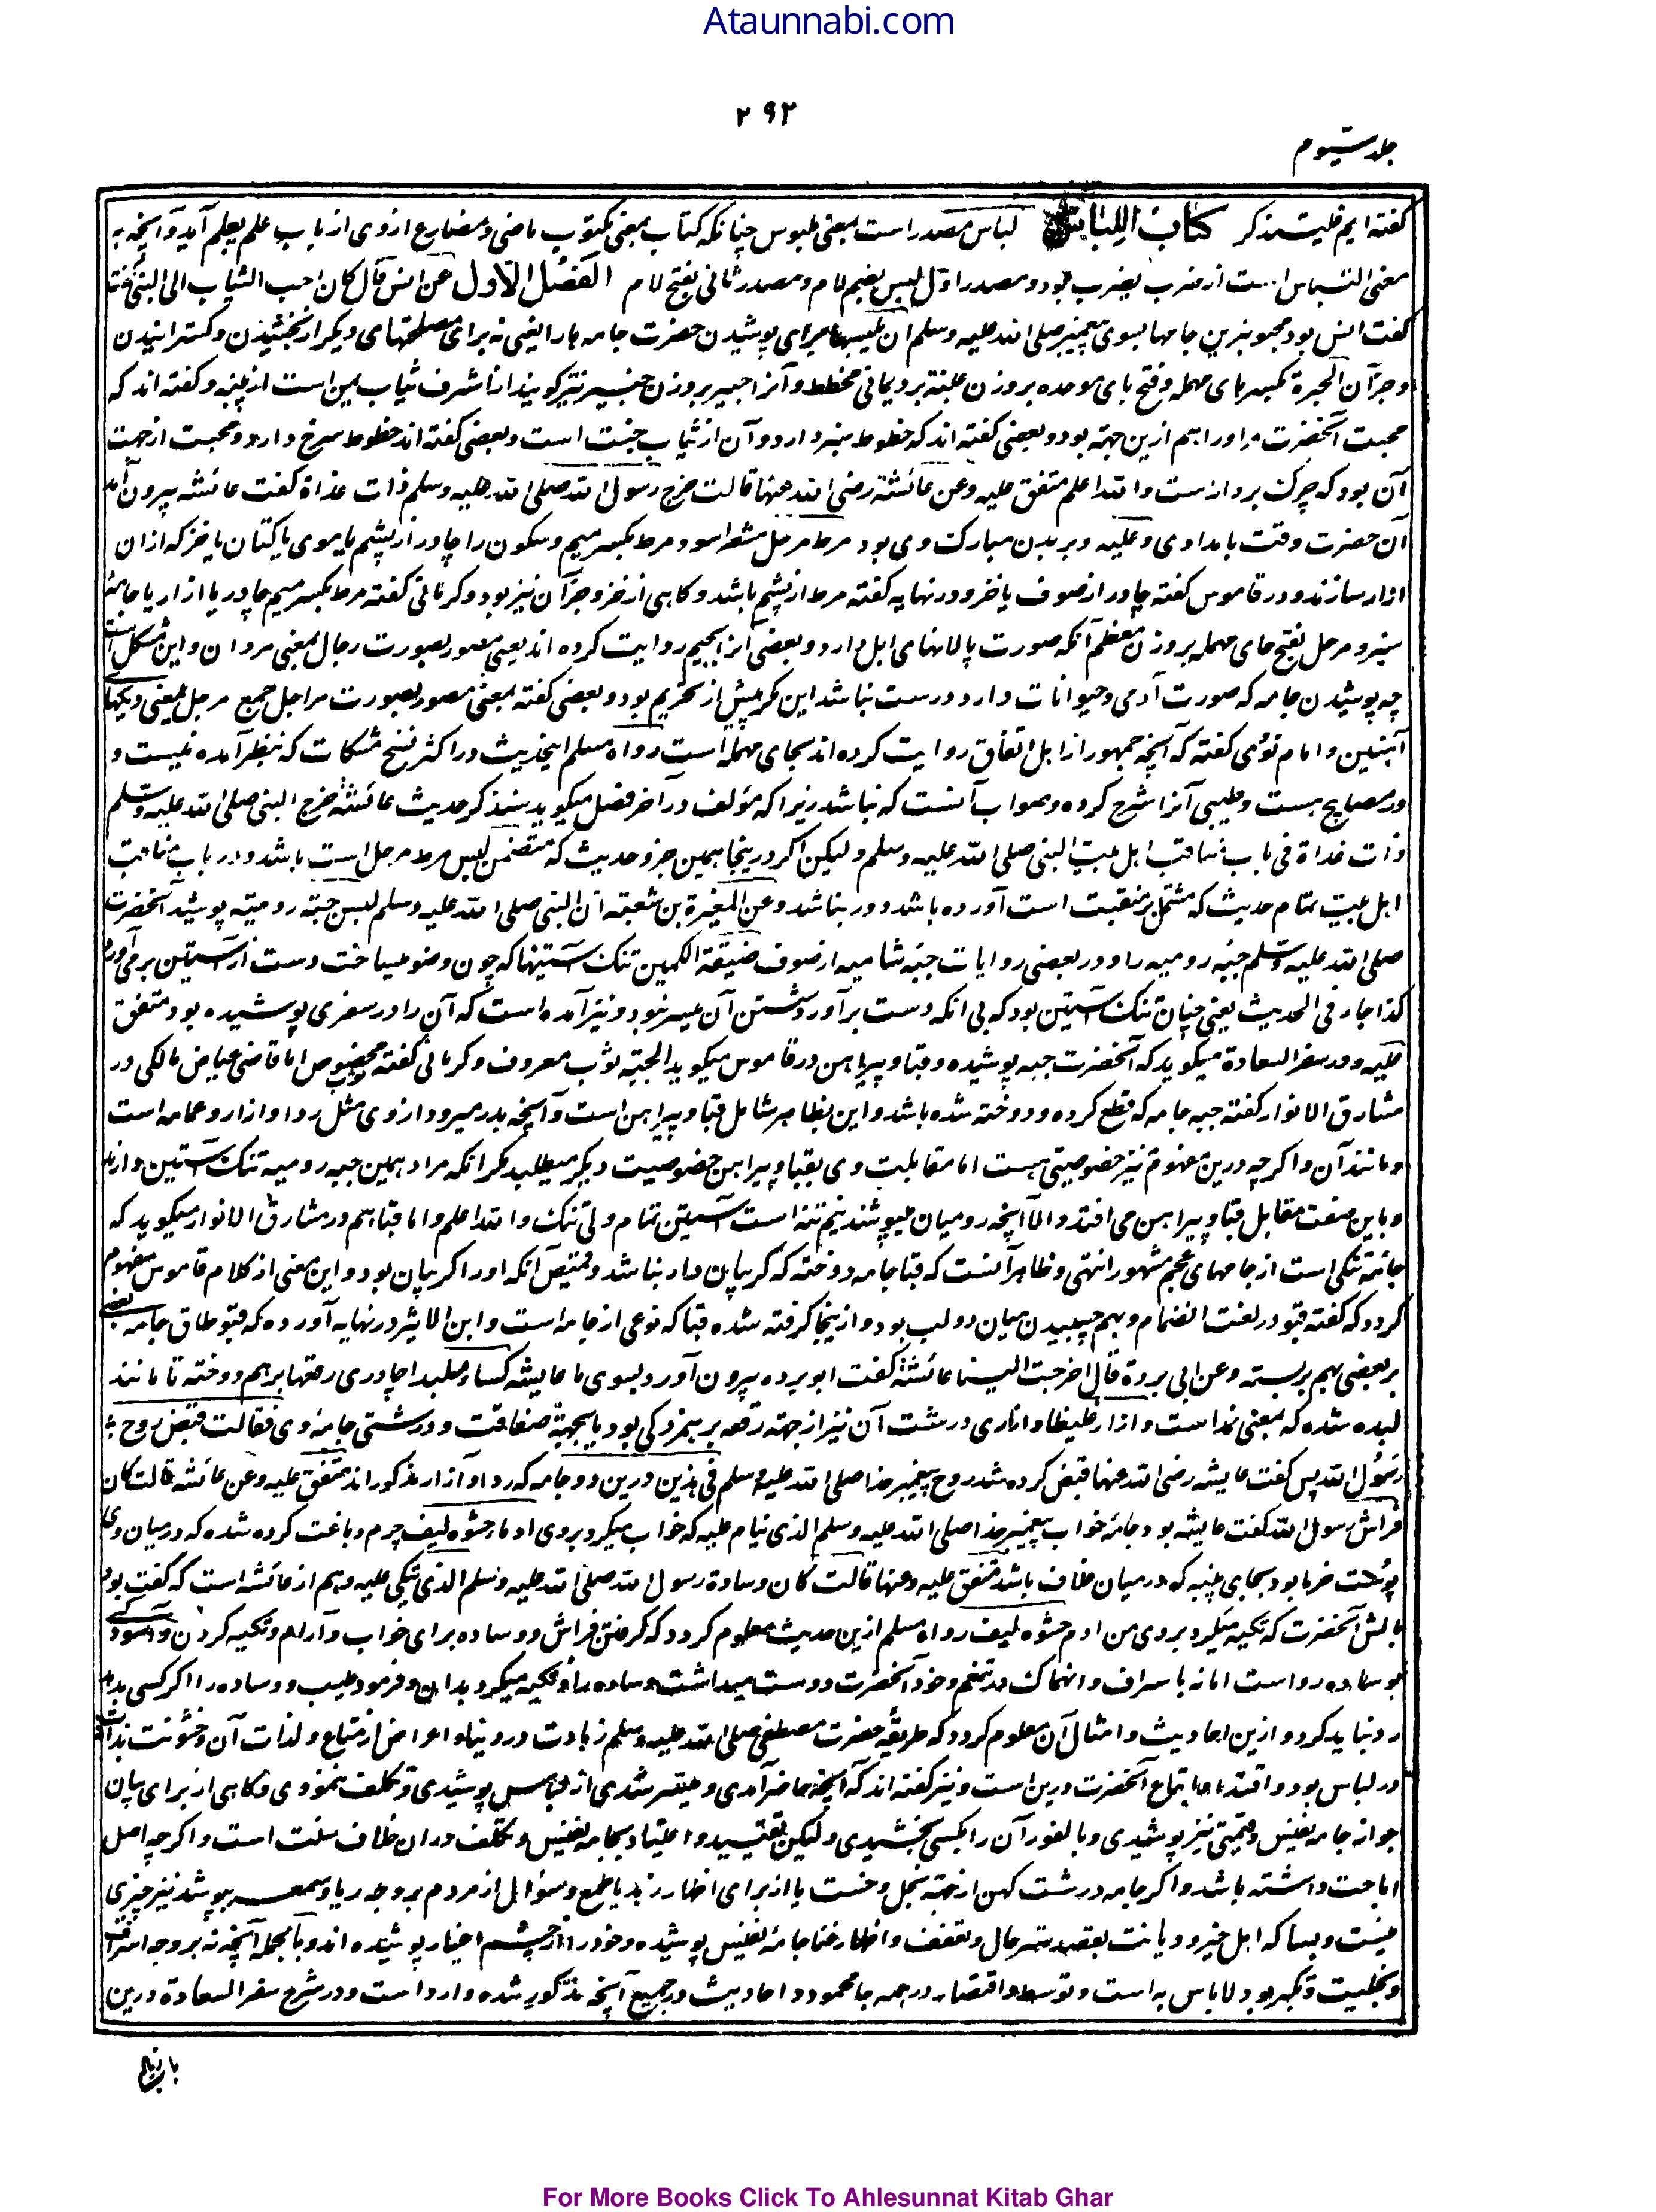 Ataunnabi.com
۲۹۲
جلد سیوم
گفته ایم فلیتذکر کتاب اللباس لباس مصدر است بمعنی ملبوس چنانکه کتاب بمعنی مکتوب ماضی و مضارع از وی از باب علم یعلم آید و آنچه به
معنی التباس است از ضرب یضرب بود و مصدر اول لبس بضم لام و مصدر ثانی بفتح لام الفصل الاول عن انس قال کان احب الثیاب الی النبی
گفت انس بود محبوبترین جامها بسوی پیغمبر صلی الله علیه وسلم ان یلبسها برای پوشیدن حضرت جامه ها را یعنی نه برای مصلحتهای دیگر از بخشیدن و گسترانیدن
و جز آن الحبرة بکسر حای مهمله و فتح بای موحده بروزن عنبة برد یمانی مخطط و آنرا حبیر بروزن خبیر نیز گویند از اشرف ثیاب یمن است از پنبه و گفته اند که
محبت آنحضرت مر اورا هم ازین جهته بود و بعضی گفته اند که خطوط سبز دارد و آن از ثیاب جنت است و بعضی گفته اند خطوط سرخ دارد و محبت از جهت
آن بود که چرک بردارست والله اعلم متفق علیه وعن عائشة رضی الله عنها قالت خرج رسول الله صلی الله علیه وسلم ذات غداة گفت عائشه بیرون آمد
آن حضرت وقت بامدادی وعلیه و بر بدن مبارک وی بود مرط مرحل شعر اسود مرط بکسر میم و سکون را چادر از پشم یا موی یا کتان یا خز که ازان
ازار سازند و در قاموس گفته چادر از صوف یا خز و در نهایه گفته مرط از پشم باشد و گاهی از خز و جز آن نیز بود و کرمانی گفته مرط بکسر میم چادر یا ازار یا جامهٔ
سبز و مرحل بفتح حای مهمله بروزن معظم آنکه صورت پالانهای ابل دارد و بعضی آنرا بجیم روایت کرده اند یعنی مصور بصورت رجال بمعنی مردان و این مشکل است
چه پوشیدن جامه که صورت آدمی و حیوانات دارد درست نباشد این مگر پیش از تحریم بود و بعضی گفته بمعنی مصور بصورت مراجل جمع مرجل بمعنی دیگها
آهنین و امام نووی گفته که آنچه جمهور از اهل اتفاق روایت کرده اند بحای مهمله است رواه مسلم این حدیث در اکثر نسخ مشکات که بنظر آمده نیست و
در مصابیح هست و طیبی آنرا شرح کرده و صواب آنست که نباشد زیرا که مؤلف در آخر فصل میگوید سنذکر حدیث عائشة خرج النبی صلی الله علیه وسلم
ذات غداة فی باب مناقب اهل بیت النبی صلی الله علیه وسلم ولیکن اگر درینجا همین جزو حدیث که متضمن لبس مرط مرحل است باشد و در باب مناقب
اهل بیت تمام حدیث که مشتمل بر منقبت است آورده باشد دور نباشد وعن المغیرة بن شعبة ان النبی صلی الله علیه وسلم لبس جبة رومیة پوشید آنحضرت
صلی الله علیه وسلم جبه رومیه را و در بعضی روایات جبه شامیه از صوف ضیقة الکمین تنگ آستینها که چون وضو میساخت دست از آستین بر می آورد
کذا جاء فی الحدیث یعنی چنان تنگ آستین بود که بی آنکه دست برآورد شستن آن میسر نبود و نیز آمده است که آن را در سفری پوشیده بود متفق
علیه و در سفر السعادة میگوید که آنحضرت جبه پوشیده و قبا و پیراهن در قاموس میگوید الجبة ثوب معروف و کرمانی گفته ثوب مخصوص اما قاضی عیاض مالکی در
مشارق الانوار گفته جبه جامه که قطع کرده و دوخته شده باشد و این بظاهر شامل قبا و پیراهن است و آنچه بدر میرود از وی مثل ردا و ازار و عمامه است
و مانند آن و اگرچه درین مفهوم نیز خصوصیتی هست اما مقابلیت وی بقبا و پیراهن خصوصیت دیگر میطلبد مگر آنکه مراد همین جبه رومیه تنگ آستین دارند
و باین صفت مقابل قبا و پیراهن می افتد والا آنچه رومیان میپوشند نیم تنه است آستین تمام ولی تنگ والله اعلم و اما قبا هم در مشارق الانوار میگوید که
جامهٔ تنگی است از جامهای عجم مشهور انتهی و ظاهر آنست که قبا جامه دوخته که گریبان دار نباشد و قمیص آنکه اورا گریبان بود و این معنی از کلام قاموس مفهوم
گردد که گفته قبو در لغت انضمام و بهم چسپیدن میان دو لب بود و ازینجا گرفته شده قبا که نوعی از جامه است و ابن الاثیر در نهایه آورده که قبو طاق جامه بعضی
بر بعضی بهم بر بسته وعن ابی بردة قال اخرجت الینا عائشة گفت ابو برده بیرون آورد بسوی ما عایشه کساء ملبدا چادری رقعها برهم دوخته تا مانند
لبده شده که بمعنی نمد است وازارا غلیظا و ازاری درشت آن نیز از جهته رقعه بر همزدگی بود یا بجهة صفاقت و درشتی جامهٔ وی فقالت قبض روح
رسول الله پس گفت عایشه رضی الله عنها قبض کرده شد روح پیغمبر خدا صلی الله علیه وسلم فی هذین درین دو جامه که ردا و آزار مذکور اند متفق علیه وعن عائشه قالت کان
فراش رسول الله گفت عایشه بود جامه خواب پیغمبر خدا صلی الله علیه وسلم الذی ینام علیه که خواب میکرد بروی ادما حشوه لیف چرم دباغت کرده شده که درمیان وی
پوست خرما بود بجای پنبه که درمیان لحاف باشد متفق علیه وعنها قالت کان وسادة رسول الله صلی الله علیه وسلم الذی یتکی علیه و هم از عائشه است که گفت بود
بالش آنحضرت که تکیه میکرد بروی من ادم حشوه لیف رواه مسلم ازین حدیث معلوم گردد که گرفتن فراش و وساده برای خواب و آرام و تکیه کردن و آسودگی
بوساده رواست اما نه باسراف و انهماک در تنعم و خود آنحضرت دوست میداشت وساده را و تکیه میکرد بدان و فرمود طیب و وساده را اگر کسی بدهد
رد نباید کرد و ازین احادیث و امثال آن معلوم گردد که طریقه حضرت مصطفی صلی الله علیه وسلم زهادت در دنیا و اعراض از متاع و لذات آن و خشونت
در لباس بود و اقتداء و اتباع آنحضرت درین است و نیز گفته اند که آنچه حاضر آمدی و میسر شدی از لباس پوشیدی و تکلف ننمودی و گاهی از برای بیان
جواز جامه نفیس و قیمتی نیز پوشیدی و بالفور آن را بکسی بخشیدی ولیکن تقیید و اعتیاد بجامه نفیس و تکلف دران خلاف سنت است و اگرچه اصل
اباحت داشته باشد و اگر جامه درشت کهن از جهته بخل و خست یا از برای اظهار زهد یا طمع و سؤال از مردم بر وجه ریا و سمعه بپوشد نیز چیزی
نیست و بسا که اهل خیر و دیانت بقصد ستر حال و تعفف و اظهار غنا جامهٔ نفیس پوشیده و خود را از چشم اغیار پوشیده اند و بالجمله آنچه نه بر وجه اسراف
و تکبر بود لاباس به است و توسط و اقتصار در همه جا محمود و احادیث در جمیع آنچه مذکور شده وارد است و در شرح سفر السعادة درین
For More Books Click To Ahlesunnat Kitab Ghar